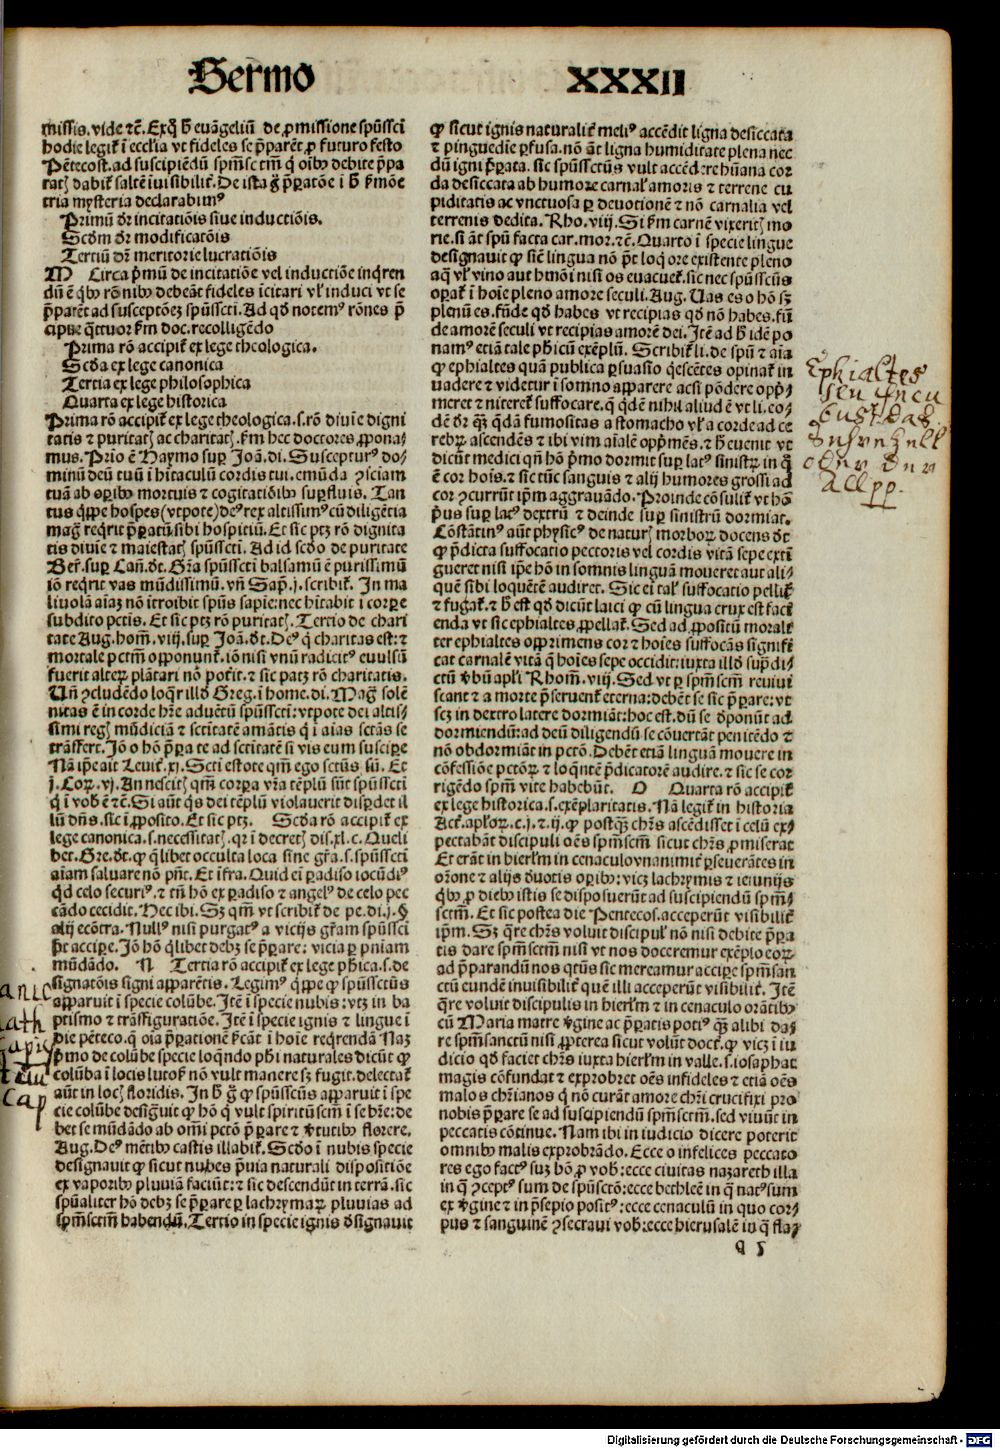 Sermo XXXII
missis. vide ⁊c̄. Exq̊ h̄ evāgeliū de ꝓmissione spūssct̄i
hodie legit̄ ī ecclīa vt fideles se p̄parēt ꝓ futuro festo
Pēnthecost. ad suscipiēdū spm̄sctm̄ q̇ oībꝰ debite p̄pa
ratꝭ dabit̄ saltē īvisibilit̄. De ista ḡ p̄paratōe ī h̄ ẜmōe
tria mysteria declarabimꝰ
Primū dr̄ incitatiōis siue inductiōis.
Scd̄m dr̄ modificatōis
Tertiū dr̄ meritorie lucratiōis
M Circa p̄mū de incitatiōe vel inductiōe inq̇ren
dū ē q̇bꝰ rōnibꝰ debeāt fideles īcitari vl̓ induci vt se
p̄parēt ad susceptōeꝫ spūssct̄i. Ad qd̄ notemꝰ rōnes p̄
cipue q̄ttuor ẜm doc. recolligēdo
Prima rō accipit̄ ex lege theologica.
Scd̄a ex lege canonica
Tertia ex lege philosophica
Quarta ex lege historica
Prima rō accipit̄ ex lege theologica. s. rō divīe digni
tatis ⁊ puritatꝭ ac charitatꝭ. ẜm hec doctores ꝓpona
mus. Prīo ē Haymo suꝑ Joā. di. Suscepturꝰ do
minū deū tuū ī hītaculū cordis tui. emūda ꝯsciam
tuā ab oꝑibꝰ mortuis ⁊ cogitatiōibꝰ suꝑfluis. Tan
tus q̇ppe hospes (vtpote) deꝰ ⁊ rex altissimꝰ cū diligētia
mag̅ req̇rit p̄paratū sibi hospitiū. Et sic ptꝫ rō dignita
tis divīe ⁊ maiestatꝭ spūssct̄i. Ad id scd̄o de puritate
Ber̄. suꝑ Can̄. dt̄. Gr̄a spūssct̄i balsamū ē purissimū
iō req̇rit vas mūdissimū. vn̄ Sap̄. j. scribit̄. In ma
livolā aīaꝫ nō ītroibit spūs sapīe: nec hītabit ī corꝑe
subdito pctīs. Et sic ptꝫ rō puritatꝭ. Tertio de chari
tate Aug. hom̄. viij. suꝑ Joā. dt̄. Deꝰ q̇ charitas est: ⁊
mortale pctm̄ opponunt̄. iō nisi vnū radicitꝰ evulsū
fuerit alteꝝ plātari nō poter̄it. ⁊ sic patꝫ rō charitatis.
Vn̄ ꝯcludēdo loq̇r illd̄ Greg. ī home. di. Mag̅ solē
nitas ē in corde hr̄e advētū spūssct̄i: vtpote dei altis⸗
simi regꝭ mūdiciā ⁊ sctītatē amātis q̇ ī aīas sctās se
trāsfert. Iō o hō p̄para te ad sctītatē si vis eum suscipe
Nā ip̄e ait Levit̄. xj. Sct̄i estote qm̄ ego sctūs suꝫ. Et
j. Coꝝ. vj. An nescitꝭ qm̄ corꝑa vr̄a tēplū sūt spūssct̄i
q̇ ī vob̄ ē ⁊c̄. Si aūt q̇s dei tēplū violaverit disꝑdet il
lū dn̄s. sic ī ꝓposito. Et sic ptꝫ. Scd̄a rō accipit̄ ex
lege canonica. s. necessitatꝭ. qr̄ ī decretꝭ dis. xl. c. Queli
bet. Gre. dt̄. ꝙ q̄libet occulta loca sine gr̄a. s. spūssct̄i
aīam salvare nō pn̄t. Et īfra. Quid eī ꝑadiso iocūdiꝰ
qd̄ celo securiꝰ. ⁊ tn̄ hō ex ꝑadiso ⁊ angelꝰ de celo pec
cādo cecidit. Hec ibi. Sꝫ qm̄ vt scribit̄ de pe. di. j. §
alij ecōtra. Nullꝰ nisi purgatꝰ a vicijs gr̄am spūssct̄i
p̄t accipe. Iō hō q̇libet debꝫ se p̄parare: vicia ꝑ pn̄iam
mūdādo. N Tertia rō accipit̄ ex lege ph̄ica. s. de
signatōis signi apparētis. Legimꝰ q̇ppe ꝙ spūssctūs
apparuit ī specie colūbe. Itē ī specie nubis: vtꝫ in ba
ptismo ⁊ trāsfiguratiōe. Itē ī specie ignis ⁊ lingue ī
die pēteco. q̄ oīa p̄parationē ẜcāt ī hoīe req̇rendā Naꝫ
p̄mo de colūbe specie loq̄ndo ph̄i naturales dicūt ꝙ
colūba ī locis lutos̄ nō vult manere sꝫ fugit. delectat̄
aūt in locꝭ floridis. In h̄ ḡ ꝙ spūssctūs apparuit ī spe
cie colūbe desig̅vit ꝙ hō q̇ vult spiritūsctm̄ ī se hr̄e: de
bet se mūdādo ab om̄i pctō p̄parare ⁊ v̓tutibꝰ florere.
Aug. Deꝰ mētibꝰ castis illabit̄. Scd̄o ī nubis specie
designavit ꝙ sicut nubes p̄via naturali dispositiōe
ex vaporibꝰ pluviā faciūt: ⁊ sic descendūt in terrā. sic
spūaliter hō debꝫ se p̄parare ꝑ lachrymaꝝ pluvias ad
spm̄sctm̄ habendū. Tertio in specie ignis d̓signavit
ꝙ sicut ignis naturalit̄ meliꝰ accēdit ligna desiccata
⁊ pinguedīe ꝑfusa. nō āt ligna humiditate plena nec
dū igni p̄parata. sic spūssctūs vult accēdere hūana cor
da desiccata ab humore carnal̓ amoris ⁊ terrene cu
piditatis ac vnctuosa ꝑ devotionē ⁊ nō carnalia vel
terrenis dedita. Rho. viij. Si ẜm carnē vixeritꝭ mo
rie. si āt spū facta car. mor. ⁊c̄. Quarto ī specie lingue
designavit ꝙ siē lingua nō p̄t loq̇ ore existente pleno
aq̄ vl̓ vino aut hm̄oi nisi os evacuet̄. sic nec spūssctūs
oꝑat̄ ī hoīe pleno amore seculi. Aug. Vas es o hō sꝫ
plenū es. fūde qd̄ habes vt recipias qd̄ nō habes. fū
de amorē seculi vt recipias amorē dei. Itē ad h̄ idē po
namꝰ etiā tale ph̄icū exēplū. Scribit̄ li. de spū ⁊ aīa
ꝙ ephialtes quā publica ꝑsuasio q̇escētes opinat̄ in
vadere ⁊ videtur ī somno apparere acsi pōdere oppri⸗
meret ⁊ niteret̄ suffocare. q̄ q̇dē nihil aliud ē vt li. eo⸗
dē dr̄ qꝫ q̄dā fumositas a stomacho vl̓ a corde ad ce
rebꝝ ascendēs ⁊ ibi vim aīalē opprimēs. ⁊ h̄ evenit vt
dicūt medici qn̄ hō p̄mo dormit suꝑ latꝰ sinistꝝ in q̊
ē cor hoīs. ⁊ sic tūc sanguis ⁊ alij humores grossi ad
cor ꝯcurrūt ip̄m aggravādo. Proinde cōsulit̄ vt hō
p̄us suꝑ latꝰ dextrū ⁊ deinde suꝑ sinistrū dormiat.
Cōstātinꝰ aūt physicꝰ de naturꝭ morboꝝ docens dt̄
ꝙ p̄dicta suffocatio pectoris vel cordis vitā sepe exti
gueret nisi ip̄e hō in somnis linguā moveret aut ali⸗
quē sibi loquētē audiret. Sic ei tal̓ suffocatio pellit̄
⁊ fugat̄. ⁊ h̄ est qd̄ dicūt laici ꝙ cū lingua crux est faci
enda vt sic ephialtes ꝓpellat̄. Sed ad ꝓpositū moralit̄
ter ephialtes opprimens cor ⁊ hoīes suffocās signifi
cat carnalē vitā q̄ hoīes sepe occidit: iuxta illd̄ sup̄di⸗
ctū v̓bū apl̓i Rhom̄. viij. Sed vt ꝑ spm̄sctm̄ revivi
scant ⁊ a morte p̄serventur eterna: debēt se sic p̄parare: vt
scꝫ in dextro latere dormiāt: hoc est. dū se d̓ponūt ad
dormiendū: ad deū diligendū se cōvertāt penitēdo ⁊
nō obdormiāt in pctō. Debēt etiā linguā movere in
cōfessiōe pctōꝝ ⁊ loq̄ntē p̄dicatorē audire. ⁊ sic se cor
rigēdo spm̄ vite habebūt. O Quarta rō accipit̄
ex lege historica. s. exēplaritatis. Nā legit̄ in historia
Act̄. apl̓oꝝ. c. j. ⁊ ij. ꝙ postqꝫ chr̄s ascēdisset ī celū ex⸗
pectabāt discipuli oēs spm̄sctm̄ sicut chr̄s ꝓmiserat
Et erāt in hierl̓m in cenaculo vnanimit̄ ꝑseverātes in
orōne ⁊ alijs d̓votis oꝑibꝰ: vicꝫ lachrymis ⁊ ieiunijs
q̇bꝰ ꝑ diebꝰ istis se disposuerūt ad suscipiendū spm̄⸗
sctm̄. Et sic postea die Pentecos. acceperūt visibilit̄
ip̄m. Sꝫ q̄re chr̄s voluit discipul̓ nō nisi debite p̄para
tis dare spm̄sctm̄ nisi vt nos doceremur exēplo eoꝝ
ad p̄parandū nos qtūs sic mereamur accipe spm̄san
ctū eundē invisibilit̄ quē illi acceperūt visibilit̄. Itē
q̄re voluit discipulis in hierl̓m ⁊ in cenaculo orātibꝰ
cū Maria matre v̓gine ac p̄paratis potiꝰ qꝫ alibi da⸗
re spm̄sanctū nisi ꝓpterea sicut volūt doct̄. ꝙ vicꝫ ī iu
dicio qd̄ faciet chr̄s iuxta hierl̓m in valle. s. iosaphat
magis cōfundat ⁊ exprobret oēs infideles ⁊ etiā oēs
malos chr̄ianos q̇ nō curāt amore chr̄i crucifixi pro
nobis p̄parare se ad suscipiendū spm̄sctm̄. sed viuūt in
peccatis cōtinue. Nam ibi in iudicio dicere poterit
omnibꝰ malis exprobrādo. Ecce o infelices peccato
res ego factꝰ suꝫ hō ꝓ vob̄: ecce civitas nazareth illa
in q̄ ꝯceptꝰ sum de spūsctō: ecce bethleē in q̄ natꝰ sum
ex v̓gine ⁊ in p̄sepio positꝰ: ecce cenaculū in quo cor⸗
pus ⁊ sanguinē ꝯsecravi vob̄: ecce hierusalē in q̄ fla⸗
q 5
Ephialtes
seu Incu
bus: das
Schretzell
oder der
Allpp.